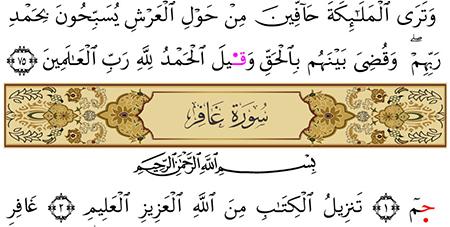 وَتَرَى ٱلْمَلَٰٓئِكَةَ حَآفِّينَ مِنْ حَوْلِ ٱلْعَرْشِ يُسَبِّحُونَ بِحَمْدِ
رَبِّهِمْ ۖ وَقُضِىَ بَيْنَهُم بِٱلْحَقِّ وَقِيلَ ٱلْحَمْدُ لِلَّهِ رَبِّ ٱلْعَٰلَمِينَ ﴿٧٥﴾
سُورَةُ غَافِرٍ
بِسْمِ ٱللَّهِ ٱلرَّحْمَٰنِ ٱلرَّحِيمِ
حمٓ ﴿١﴾ تَنزِيلُ ٱلْكِتَٰبِ مِنَ ٱللَّهِ ٱلْعَزِيزِ ٱلْعَلِيمِ ﴿٢﴾ غَافِرِ